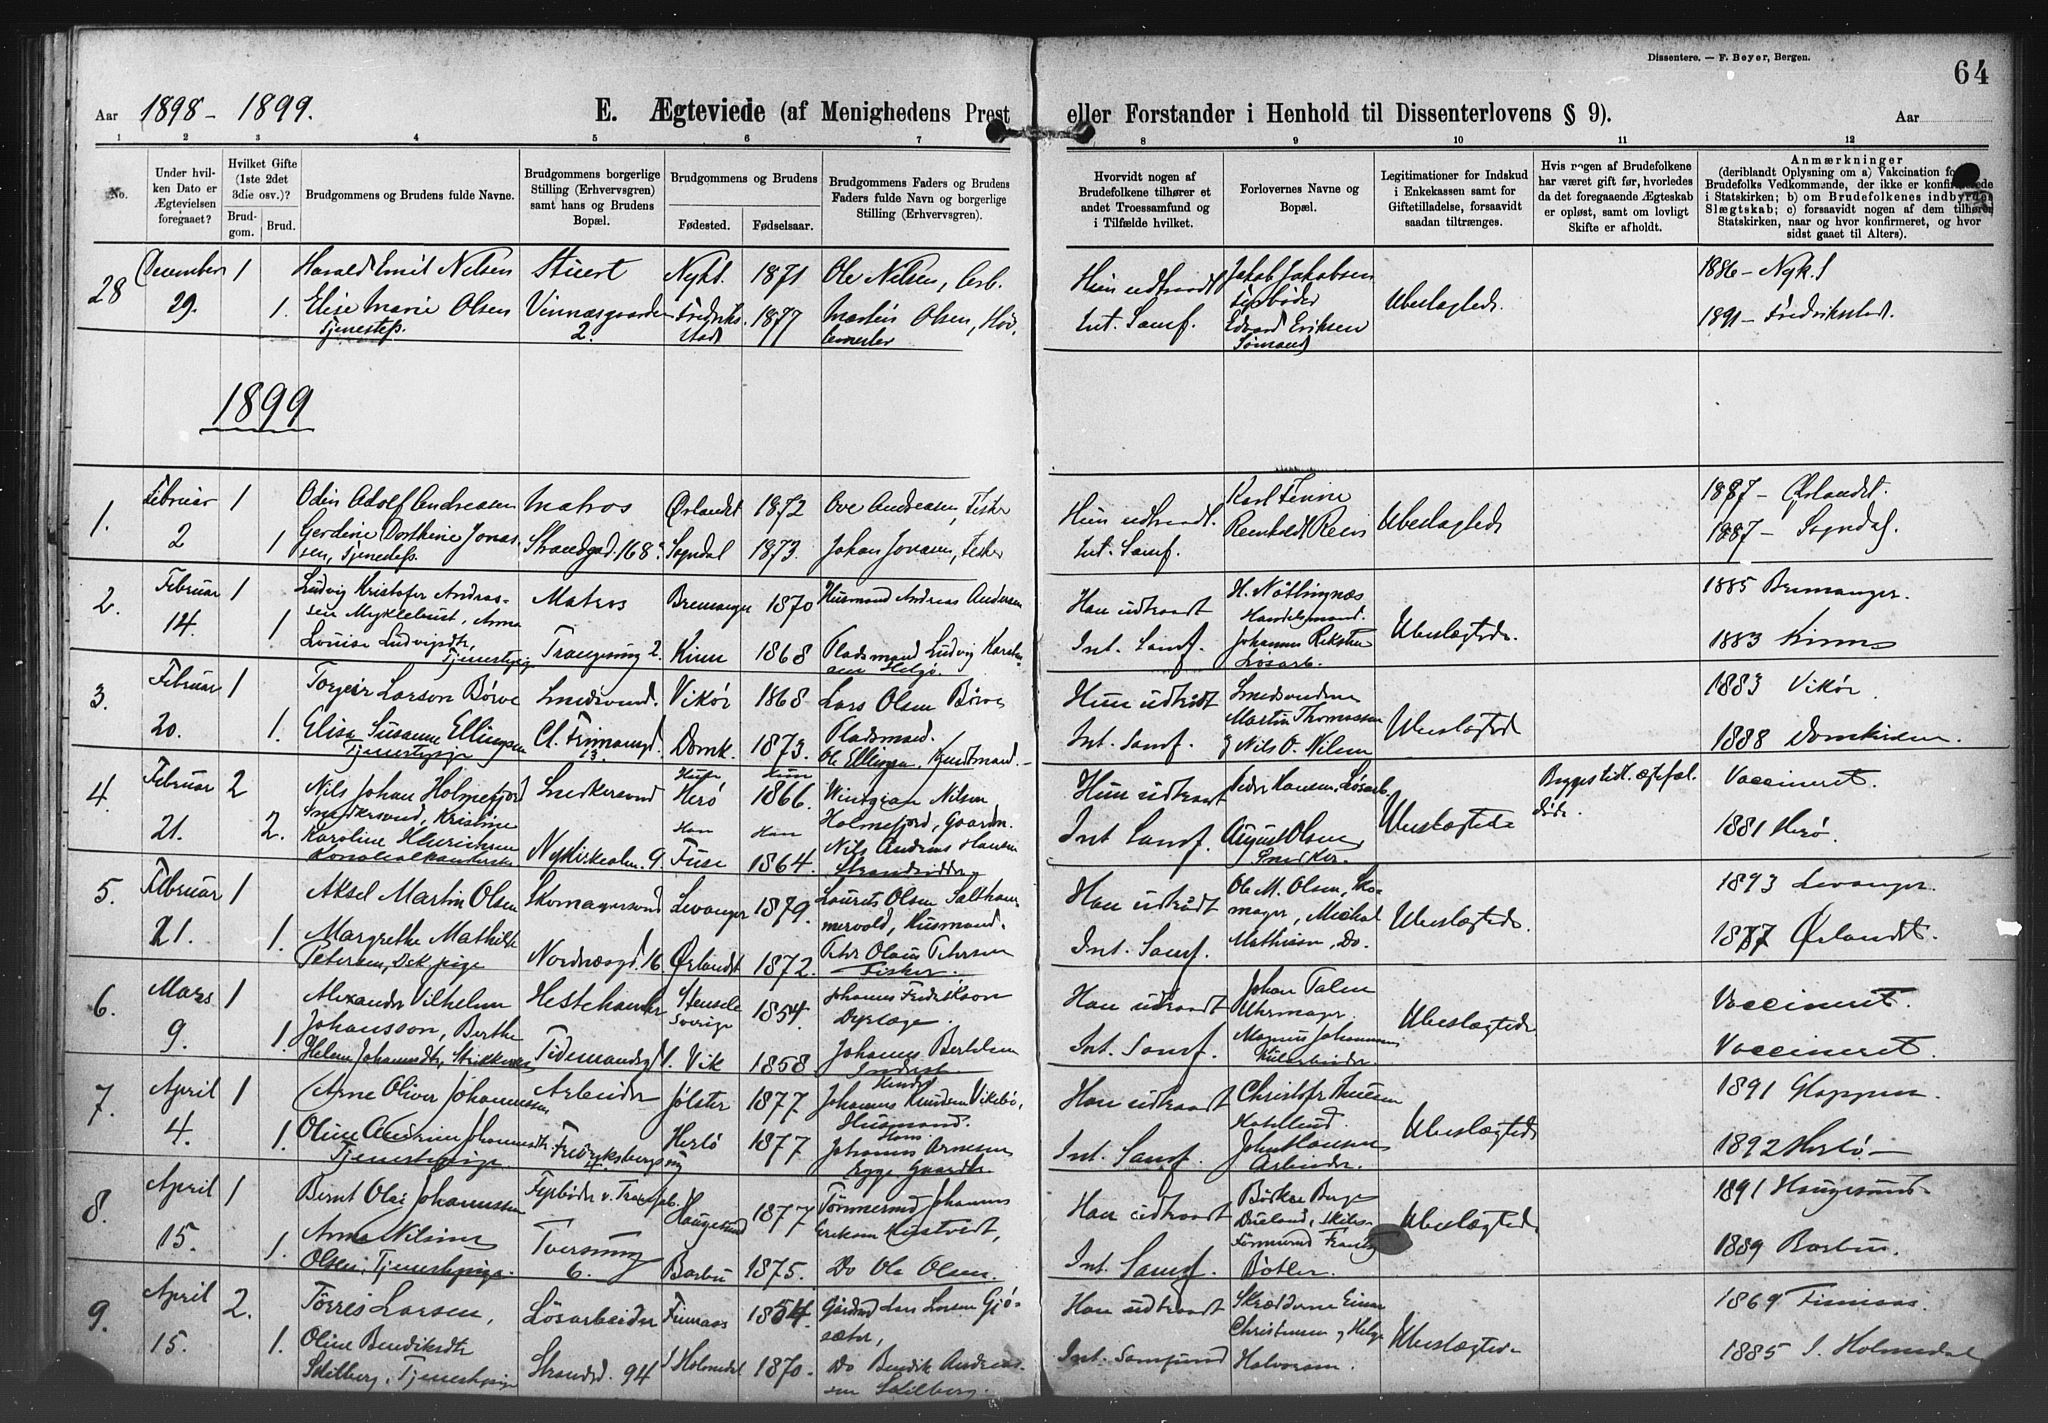 Dissentere. — F. Beyer, Bergen.
64
Aar 1898 - 1899.
E. Ægteviede (af Menighedens Prest eller Forstander i Henhold til Dissenterlovens § 9).
Aar
1 2 3 4 5 6 7 8 9 10 11 12
No.
Under hvilken Dato er Ægtevielsen foregaaet?
Hvilket Gifte (1ste 2det 3die osv.)?
Brudgom. Brud.
Brudgommens og Brudens fulde Navne.
Brudgommens borgerlige Stilling (Erhvervsgren) samt hans og Brudens Bopæl.
Brudgommens og Brudens
Fødested. Fødselsaar.
Brudgommens Faders og Brudens Faders fulde Navn og borgerlige Stilling (Erhvervsgren).
Hvorvidt nogen af Brudefolkene tilhører et andet Troessamfund og i Tilfælde hvilket.
Forlovernes Navne og Bopæl.
Legitimationer for Indskud i Enkekassen samt for Giftetilladelse, forsaavidt saadan tiltrænges.
Hvis nogen af Brudefolkene har været gift før, hvorledes da det foregaaende Ægteskab er opløst, samt om lovligt Skifte er afholdt.
Anmærkninger
(deriblandt Oplysning om a) Vakcination for Brudefolks Vedkommende, der ikke er konfirmerede i Statskirken; b) om Brudefolkenes indbyrdes Slægtskab; c) forsaavidt nogen af dem tilhører Statskirken, naar og hvor konfirmeret, og hvor sidst gaaet til Alters).
28 December 1 Harald Emil Nilsen Stuert Nykl. 1871 Ole Nilsen, Arb. Hun udtraadt Jakob Jakobsen 1886 - Nyk.
29. 1. Elise Marie Olsen Vinnæsgaarden Fredriks 1877 Martin Olsen, Høv Int. Samf. Fyrbøder Ubeslægtede. 1891 - Fredrikstad.
Tjenestep. 2. stad Edvard Eriksen
Sømand
1899
1. Februar 1 Odin Adolf Andreasen Matros Ørlandet 1872 Ove Andreasen, Fisker Hun udtraadt. Karl 1887 - Ørlandet.
2 1 Gerdine Dorthine Jonas- Strandgd. 168 Sogndal 1873. Johan Jonasen, Fisker Int. Samf. Ubeslægtede 1887 - Sogndal.
sen, Tjenestep.
2. Februar 1 Ludvig Kristofer Andreas- Matros Bremanger 1870 Husmand Andreas Andersen Han udtraadt H. Nøtlingnæs 1885 Bremanger.
14. 1 sen Myklebust, Anna Handelsmand. Ubeslægtede.
Louise Ludvigsdtr, Tjenestepige 2. Kinn 1868 Pladsmand Ludvig Karsten- Int. Samf. Johannes Løsarb. 1883 Kinn
3. Februar 1 Torgeir Larson Børve Smedsvend. Vikør 1868 Lars Olsen Børve Hun udtraadt Smedsvendene 1883 Vikør.
20. 1. Elise Susanne Ellingsen Domk. 1873. Pladsmand. Int. Samf. Martin Thomassen Ubeslægtede 1888 Domkirken.
Tjenestepige 13. Ole Ellingsen, & Nils O. Nilsen
4. Februar 2 Nils Johan Holmefjord Snedkersvend Herø 1866 Nilsen Hun udtraadt Peder Hansen, Løsarb. Begges tidl. ægtefæl. Vaccineret.
21. 2. Snedkersvend, Kristine Holmefjord, Gaardm. Ubeslægtede døde. 1881 Herø
Karoline Henriksen Nykirkealm. 9 Fuse 1864. Nils Andreas Hansen Int. Samf. August Olsen
Strandsidder Snedker.
5. Februar 1 Aksel Martin Olsen Skomagersvend Levanger 1879. Laurits Olsen Saltham- Han udtraadt Ole M. Olsen, Sko- 1893 Levanger.
21. 1. Margrethe Mathilde mervold, Husmand. mager, Michal Ubeslægtede.
Petersen, Nordnæsgd. 16 Ørlandet 1872. Peter Olaus Petersen Int. Samf. Mathisen, Do. 1887 Ørlandet.
Fisker.
6. Mars 1 Alexander Vilhelm Hestehandler Stensele 1854. Johannes Fredrikson Han udtraadt Johan Talen Vaccineret.
9. 1. Johansson, Berthe Sverige Dyrlæge. Uhrmager. Ubeslægtede
Helene Johannesdtr, Tidemandsgd. 1. Vik 1858. Johannes Bertelsen Int. Samf. Magnus Johannesen Vaccineret.
7. April 1 Arne Oliver Johannessen Arbeider Jølster 1877. Johannes Knudsen Vikebø, Han udtraadt Christofer 1891 Gloppen
4. 1. Oline Johannesdtr. Fredriksberg Herlø 1877 Husmand. Ubeslægtede
Tjenestepige. Johannes Arnesen Int. Samf. John Hansen 1892 Herlø
Arbeider.
8. April 1 Bernt Olai Johannesen Fyrbøder Haugesund 1877 Tømmermand Johannes Han udtraadt 1891 Haugesund
15. 1. Anna Nilsine Eriksen Ubeslægtede
Olsen, Tjenestepige. 6. Barbu 1875. Do Ole Olsen. Int. Samf. Bøtker. 1889 Barbu.
9. April 2. Tørris Larsen, Løsarbeider Finnaas 1854. Lars Larsen Gjø- Han udtraadt Skrædderne Einar 1869 Finnaas.
15. 1. Oline Bendiksdtr sæter, Christensen og Helge Ubeslægtede
Skilberg, Tjenestepige Strandgd. 94 Holmedal 1870. Do Bendik Andreas- Int. Samfund Halvorsen. 1885 I. Holmedal
sen Skilberg.